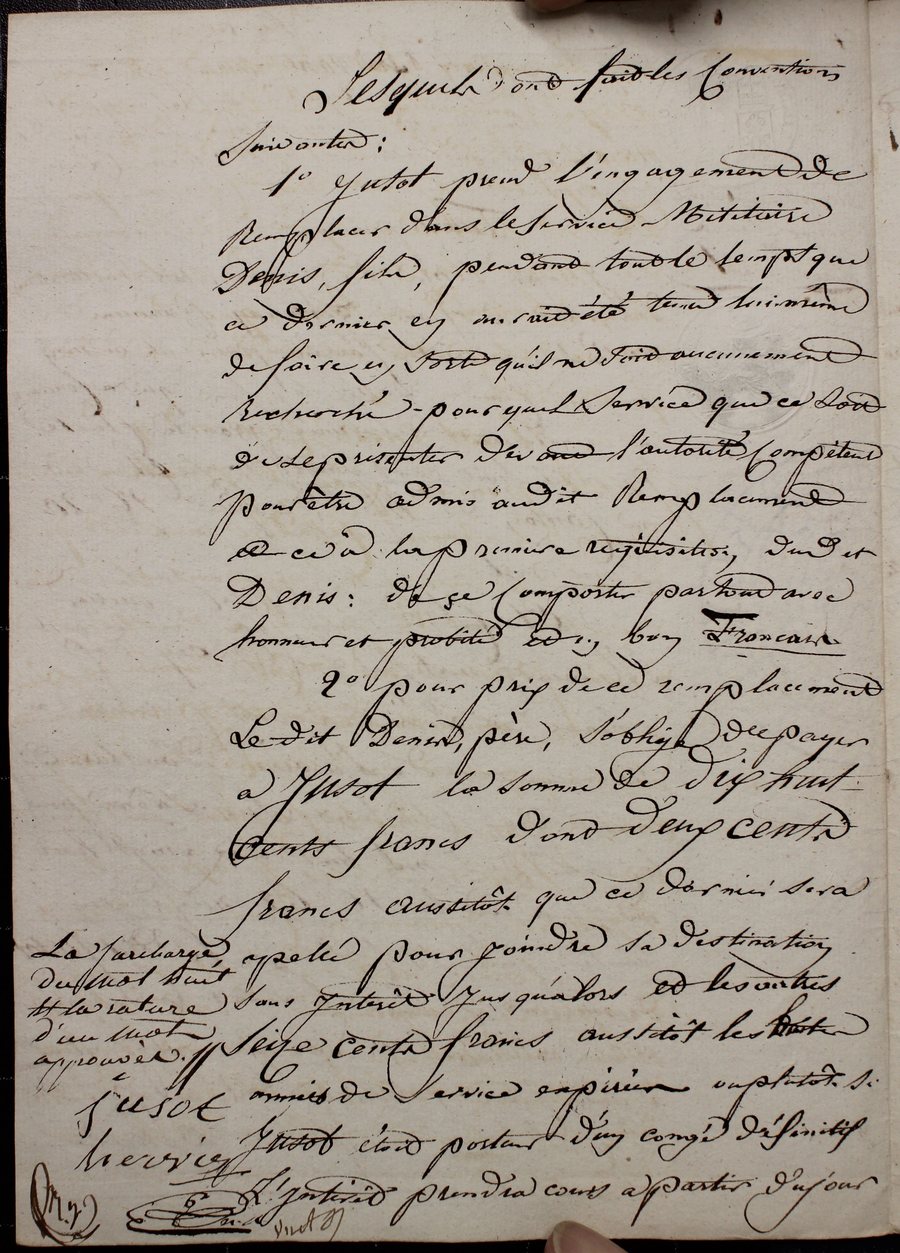 Lesquels ont fait les Conventions
Suivantes :
1° Jusot prend l'engagement de
Remplacer dans le service Militaire
Denis, fils, pendant tout le temps que
ce dernier en aurait été tenu lui même
de faire en sorte qu'il ne soit aucunement
recherché pour quel Service que ce soit
de se présenter devant l'autorité Compétent
pour être admis audit Remplacement
et ce à la première requisition dudit
Denis : de se Comporter partout avec
honneur et probité et en bon Francais
2° pour prix de ce remplacement
Le dit Denis, père, s'oblige de payer
a Jusot la somme de dix huit
cents francs dont deux cents
francs aussitôt que ce dernier sera
apelé pour joindre sa destination
sans Interêt Jusqu'alors et les autres
Seize cents francs aussitôt les huit
années de Service expirées ou plutot si
Jusot étoit porteur d'un congé définitif
L'Interêt prendra cours a partir du jour
La surcharge
du mot huit
et la rature
d'un mot
approuvée.
Jusot